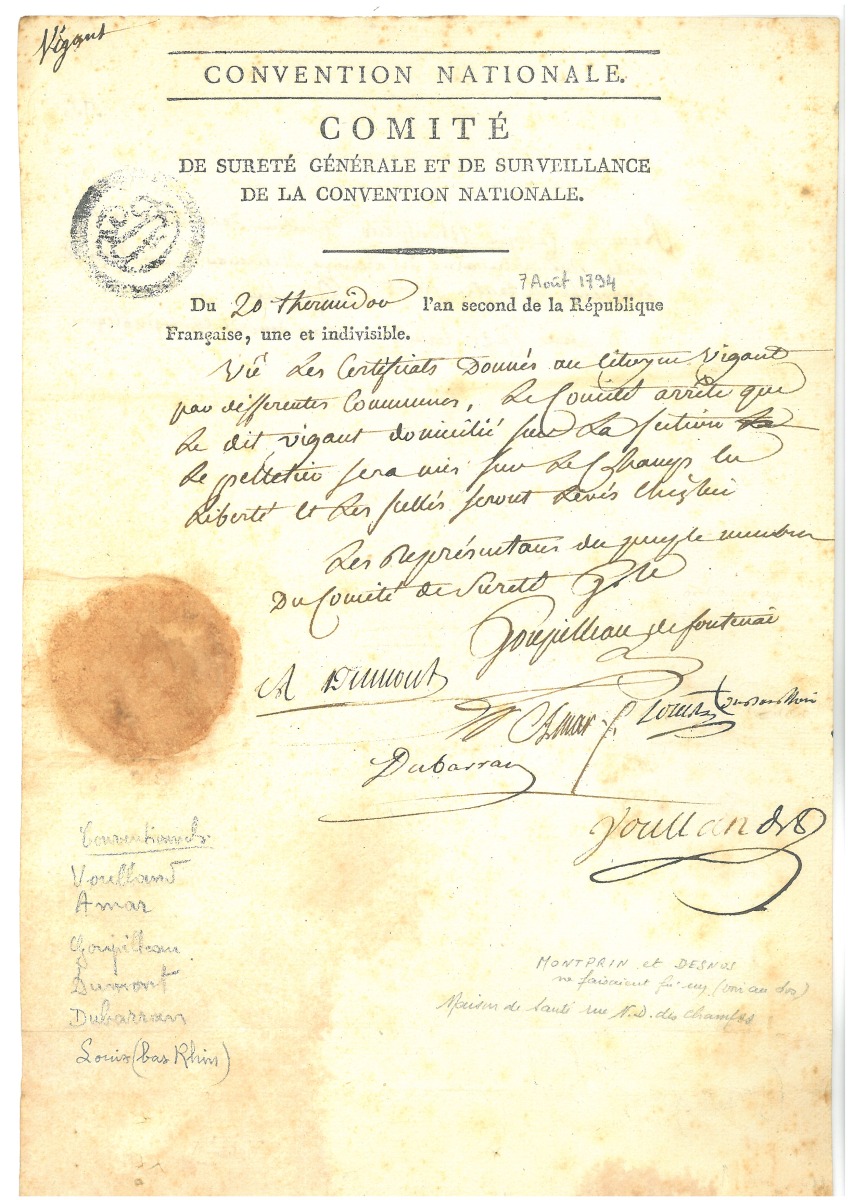 Vigant
CONVENTION NATIONALE.
COMITÉ
DE SURETÉ GÉNÉRALE ET DE SURVEILLANCE
DE LA CONVENTION NATIONALE.
7 Août 1794
Du 20 thermidor l'an second de la République
Française, une et indivisible.
Vû Les Certificats Donnés au Citoyen Vigant
par differentes Communes, Le Comité arrête que
Le dit vigant domicilié sur La section
Le pelletier sera mis sur Le Champs en
Liberté et Les scellés seront Levés chez lui
Les Représentans du peuple membres
Du Comité de Sureté Gle
Goupilleau de fontenai
A Dumont
Amar Louis du bas Rhin
Dubarran
Voulland
Conventionnels
Voulland
Amar
Goupilleau
Dumont
Dubarran
Louis (bas Rhin)
MONTPRIN et DESNOS
ne faisaient (voir au dos)
Maison de Santé rue N.D. des Champs